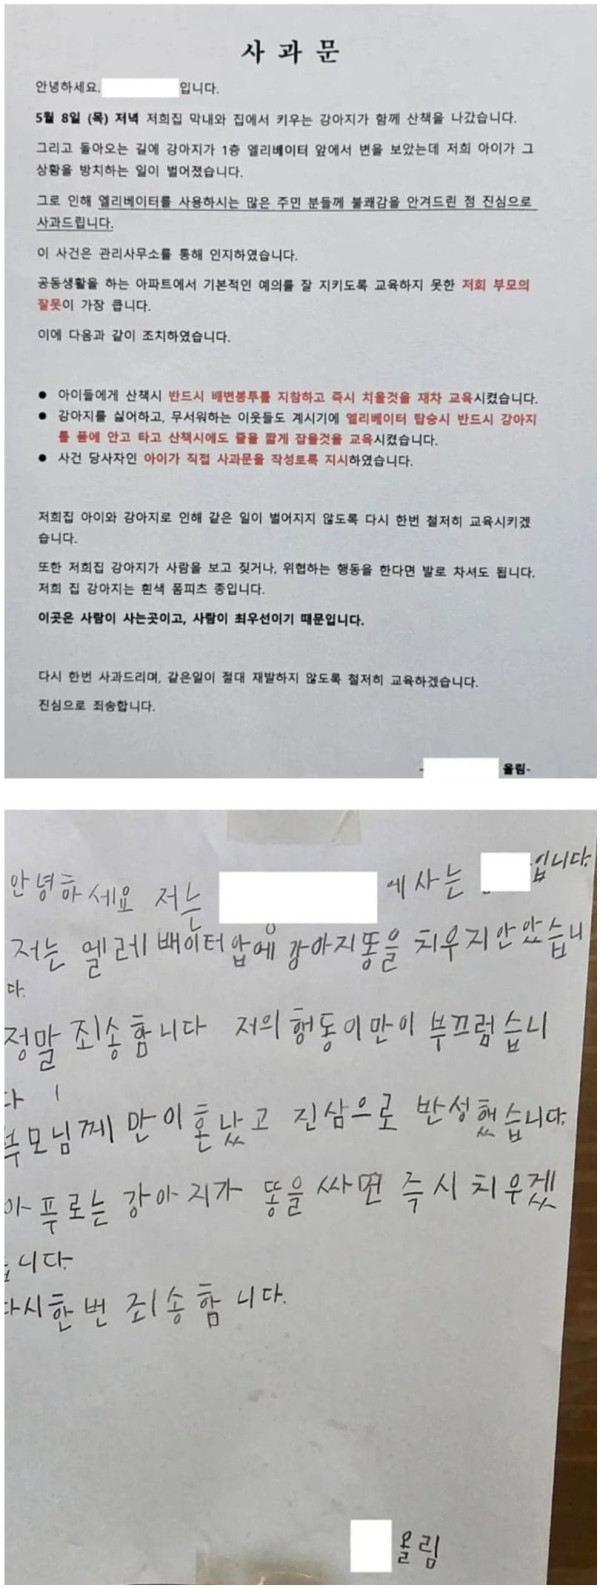 사과문
안녕하세요. 입니다.
5월 8일 (목) 저녁 저희집 막내와 집에서 키우는 강아지가 함께 산책을 나갔습니다.
그리고 돌아오는 길에 강아지가 1층 엘리베이터 앞에서 변을 보았는데 저희 아이가 그
상황을 방치하는 일이 벌어졌습니다.
그로 인해 엘리베이터를 사용하시는 많은 주민 분들께 불쾌감을 안겨드린 점 진심으로
사과드립니다.
이 사건은 관리사무소를 통해 인지하였습니다.
공동생활을 하는 아파트에서 기본적인 예의를 잘 지키도록 교육하지 못한 저희 부모의
잘못이 가장 큽니다.
이에 다음과 같이 조치하였습니다.
● 아이들에게 산책시 반드시 배변봉투를 지참하고 즉시 치울것을 재차 교육시켰습니다.
● 강아지를 싫어하고, 무서워하는 이웃들도 계시기에 엘리베이터 탑승시 반드시 강아지
를 품에 안고 타고 산책시에도 줄을 짧게 잡을것을 교육시켰습니다.
● 사건 당사자인 아이가 직접 사과문을 작성토록 지시하였습니다.
저희집 아이와 강아지로 인해 같은 일이 벌어지지 않도록 다시 한번 철저히 교육시키겠
습니다.
또한 저희집 강아지가 사람을 보고 짖거나, 위협하는 행동을 한다면 발로 차셔도 됩니다.
저희 집 강아지는 흰색 폼피츠 종입니다.
이곳은 사람이 사는곳이고, 사람이 최우선이기 때문입니다.
다시 한번 사과드리며, 같은일이 절대 재발하지 않도록 철저히 교육하겠습니다.
진심으로 죄송합니다.
- 올림-
안녕하세요 저는 에사는 입니다.
저는 엘레베이터압에 강아지똥을 치우지안았습니
다.
정말 죄송합니다 저의 형동이만이 부끄럽습니
다
부모님께 만이혼났고 진삼으로 반성했습니다.
아푸로는 강아지가 똥을 싸면 즉시 치우겠
습니다.
다시한번 죄송합니다.
올림